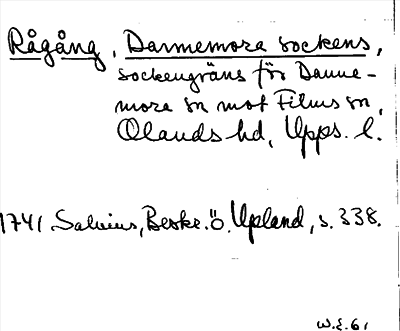 Rågång, Dannemora sockens,
sockengräns för Danne-
mora sn mot Films sn,
Olands hd, Upps. l.
1741 Salvius, Beskr. ö. Upland, s. 338.
W.E.61